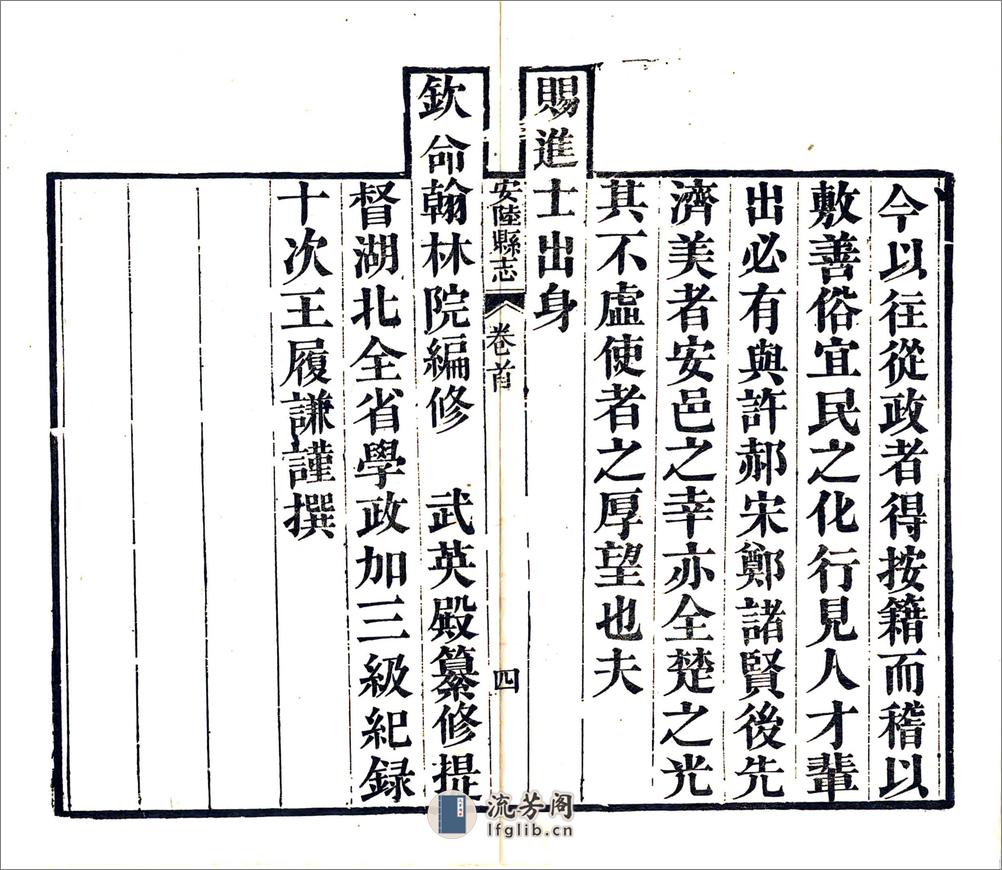 今以往從政者得按籍而稽以
敷善俗宜民之化行見人才輩
出必有與許郝宋鄭諸賢後先
濟美者安邑之幸亦全楚之光
其不虛使者之厚望也夫
賜進士出身
安陸縣志 卷首 四
欽命翰林院編修 武英殿纂修提
督湖北全省學政加三級紀録
十次王履謙謹撰
流芳阁
lfglib.cn